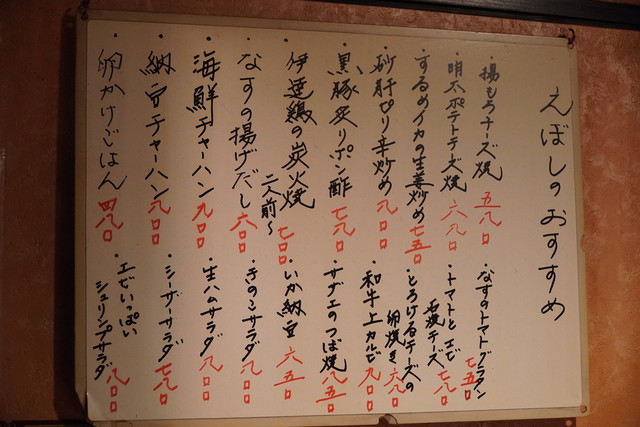 えぼしのおすすめ
・揚もちチーズ焼 五八〇
・明太ポテトチーズ焼 六八〇
・するめイカの生姜炒め 七五〇
・砂肝ピリ辛炒め 八〇〇
・黒豚炙りポン酢 七八〇
・伊達鶏の炭火焼 七〇〇
二人前〜
・なすの揚げだし 六〇〇
・海鮮チャーハン 九〇〇
・納豆チャーハン 八〇〇
・卵かけごはん 四八〇
・なすのトマトグラタン 七五〇
・トマトとエビ
石焼チーズ 七八〇
・とろけるチーズの
卵焼き 六八〇
・和牛上カルビ 九〇〇
・サザエのつぼ焼 八五〇
・いか納豆 六五〇
・きのこサラダ 八〇〇
・生ハムサラダ 八〇〇
・シーザーサラダ 七八〇
・エビいっぱい
シュリンプサラダ 八〇〇